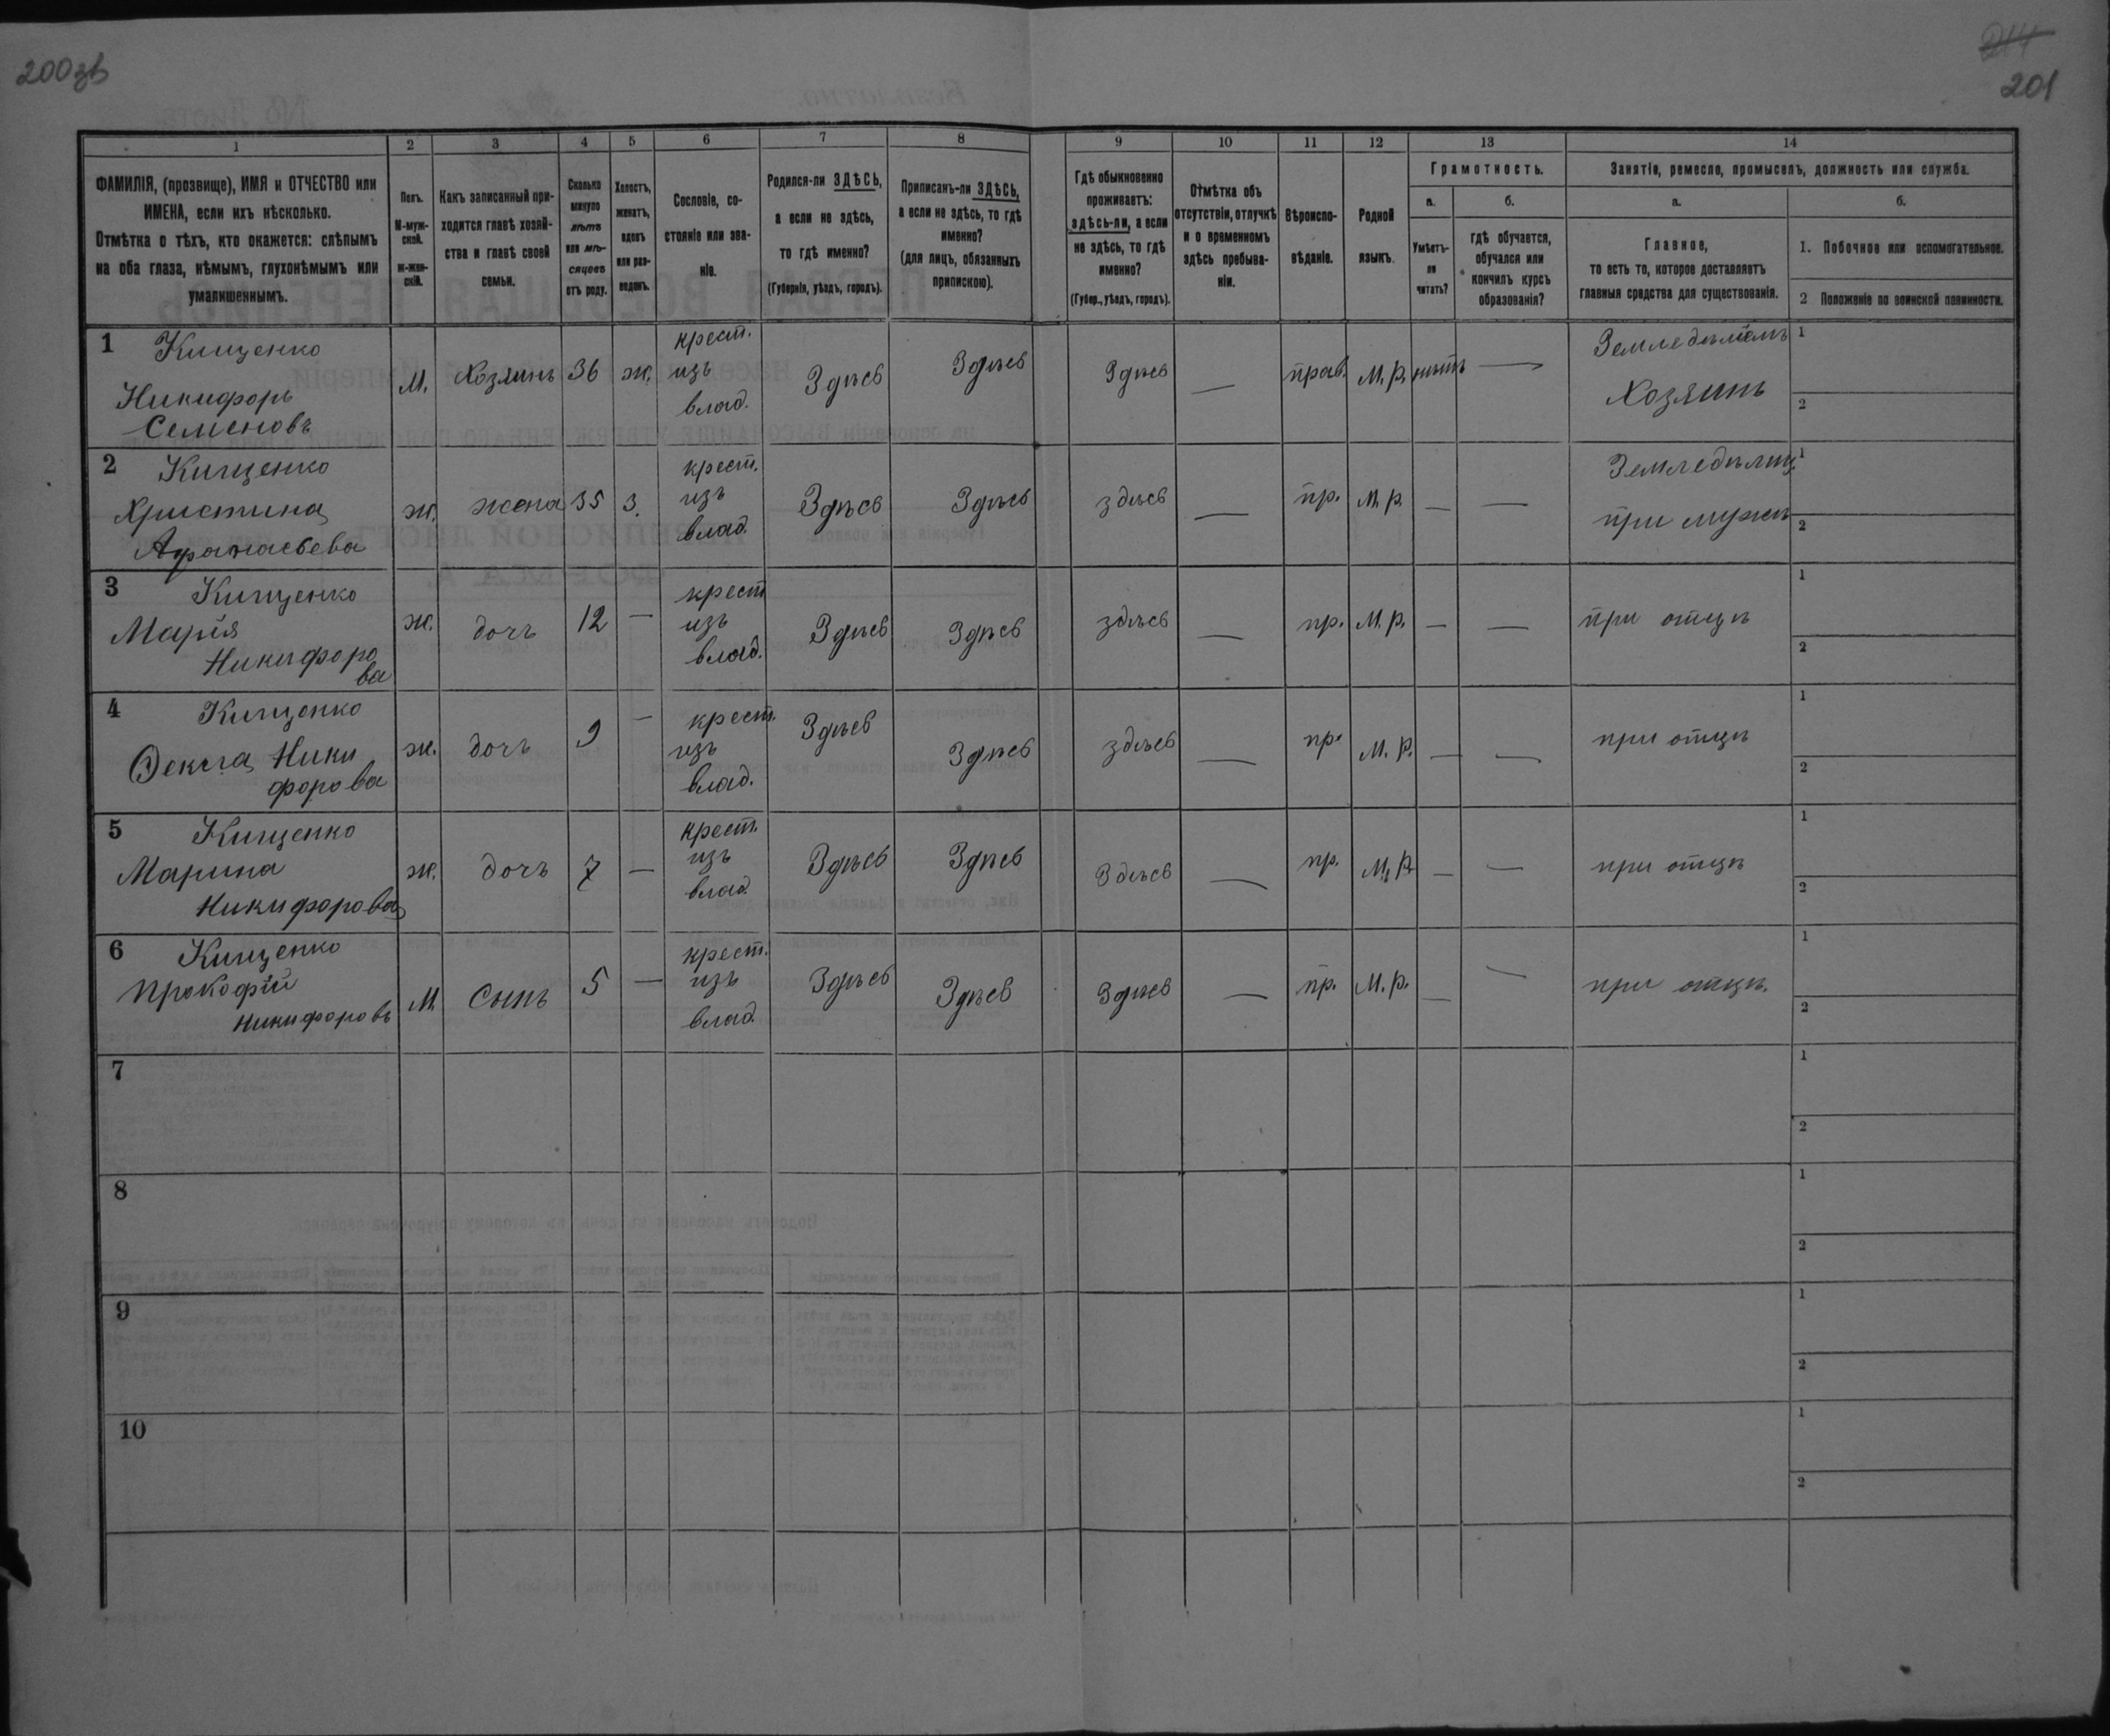 200зв
214
201
1
2
3
4
5
6
7
8
9
10
11
12
13
14
ФАМИЛІЯ, (прозвище), ИМЯ и ОТЧЕСТВО или
ИМЕНА, если ихъ нѣсколько.
Отмѣтка о тѣхъ, кто окажется: слѣпымъ
на оба глаза, нѣмымъ, глухонѣмымъ или
умалишеннымъ.
Полъ.
М-муж-
ской.
ж-жен-
скій.
Какъ записанный при-
ходится главѣ хозяй-
ства и главѣ своей
семьи.
Сколько
минуло
лѣтъ
или мѣ-
сяцевъ
отъ роду.
Холостъ,
женатъ,
вдовъ
или раз-
веденъ.
Сословіе, со-
стояніе или зва-
ніе.
Родился-ли ЗДѢСЬ,
а если не здѣсь,
то гдѣ именно?
(Губернія, уѣздъ, городъ).
Приписанъ-ли ЗДѢСЬ,
а если не здѣсь, то гдѣ
именно?
(для лицъ, обязанныхъ
припискою).
Гдѣ обыкновенно
проживаетъ:
здѣсь-ли, а если
не здѣсь, то гдѣ
именно?
(Губер., уѣздъ, городъ).
Отмѣтка объ
отсутствіи, отлучкѣ
и о временномъ
здѣсь пребыва-
ніи.
Вѣроиспо-
вѣданіе.
Родной
языкъ.
Грамотность.
а.
Умѣетъ-
ли
читать?
б.
гдѣ обучается,
обучался или
кончилъ курсъ
образованія?
Занятіе, ремесло, промыселъ, должность или служба.
а.
Главное,
то есть то, которое доставляетъ
главныя средства для существованія.
б.
1. Побочное или вспомогательное.
2 Положеніе по воинской повинности.
1 Кищенко
Никифоръ
Семеновъ
М. Хозяинъ 36 ж.
крест.
изъ
влад.
Здѣсь Здѣсь Здѣсь — прав. М. р. нѣтъ —
Земледѣлецъ
Хозяинъ
1
2
2 Кищенко
Христина
Афанасьева
ж. жена 35 з.
крест.
изъ
влад.
Здѣсь Здѣсь здѣсь — пр. М. р. — —
Земледѣлиц.
при мужѣ
1
2
3 Кищенко
Марія
Никифоро
ва
ж. дочь 12 —
крест
изъ
влад.
Здѣсь Здѣсь здѣсь — пр. М. р. — — при отцѣ
1
2
4 Кищенко
Фекла Ники
форова
ж. дочь 9 —
крест.
изъ
влад.
Здѣсь Здѣсь здѣсь — пр. М. р. — — при отцѣ
1
2
5 Кищенко
Марина
Никифорова
ж. дочь 7 —
крест.
изъ
влад.
Здѣсь Здѣсь Здѣсь — пр. М. р. — — при отцѣ
1
2
6 Кищенко
Прокофій
Никифоровъ
М. Сынъ 5 —
крест.
изъ
влад.
Здѣсь Здѣсь Здѣсь — пр. М. р. — — при отцѣ.
1
2
7
1
2
8
1
2
9
1
2
10
1
2